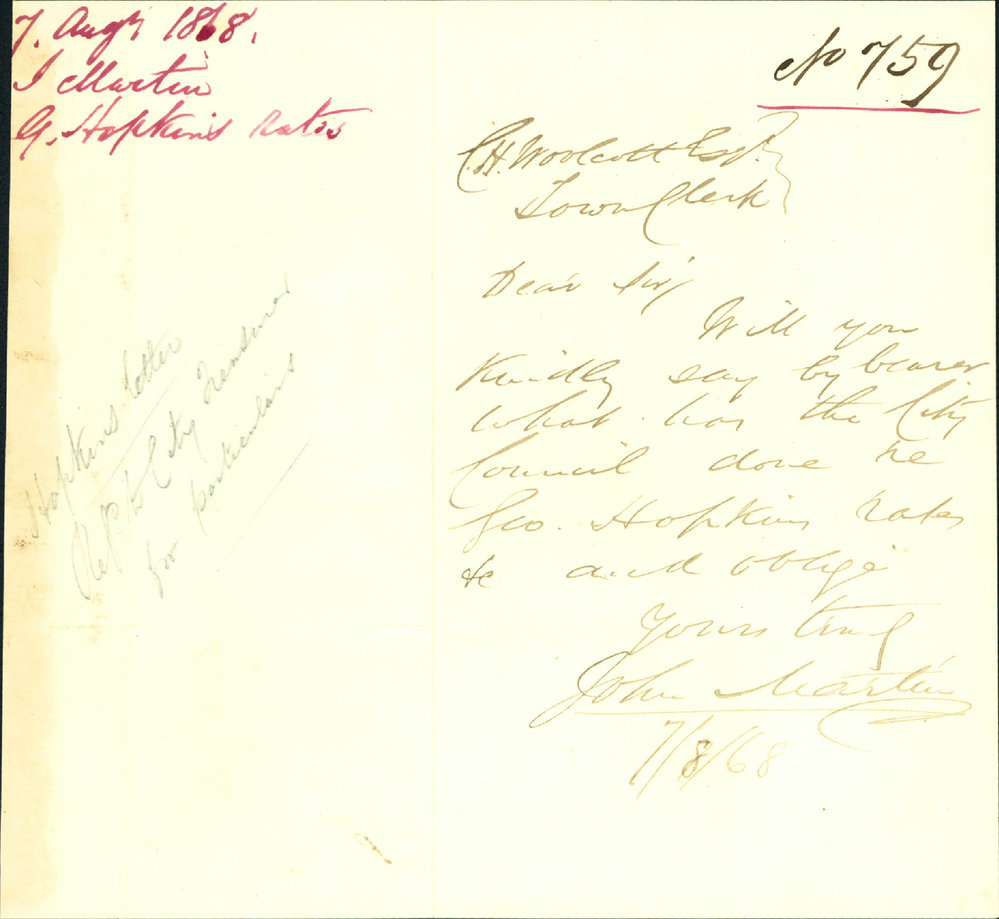 7. Augt 1868.
J Martin
G. Hopkins rates
No 759
C.H. Woolcott Esqr.
Town Clerk
Dear Sir,
Will you
kindly say by bearer
what has the City
Council done re
Geo. Hopkins rates
&c and oblige
Yours truly
John Martin
7/8/68
Hopkins letter
Refd to City Treasurer
for particulars